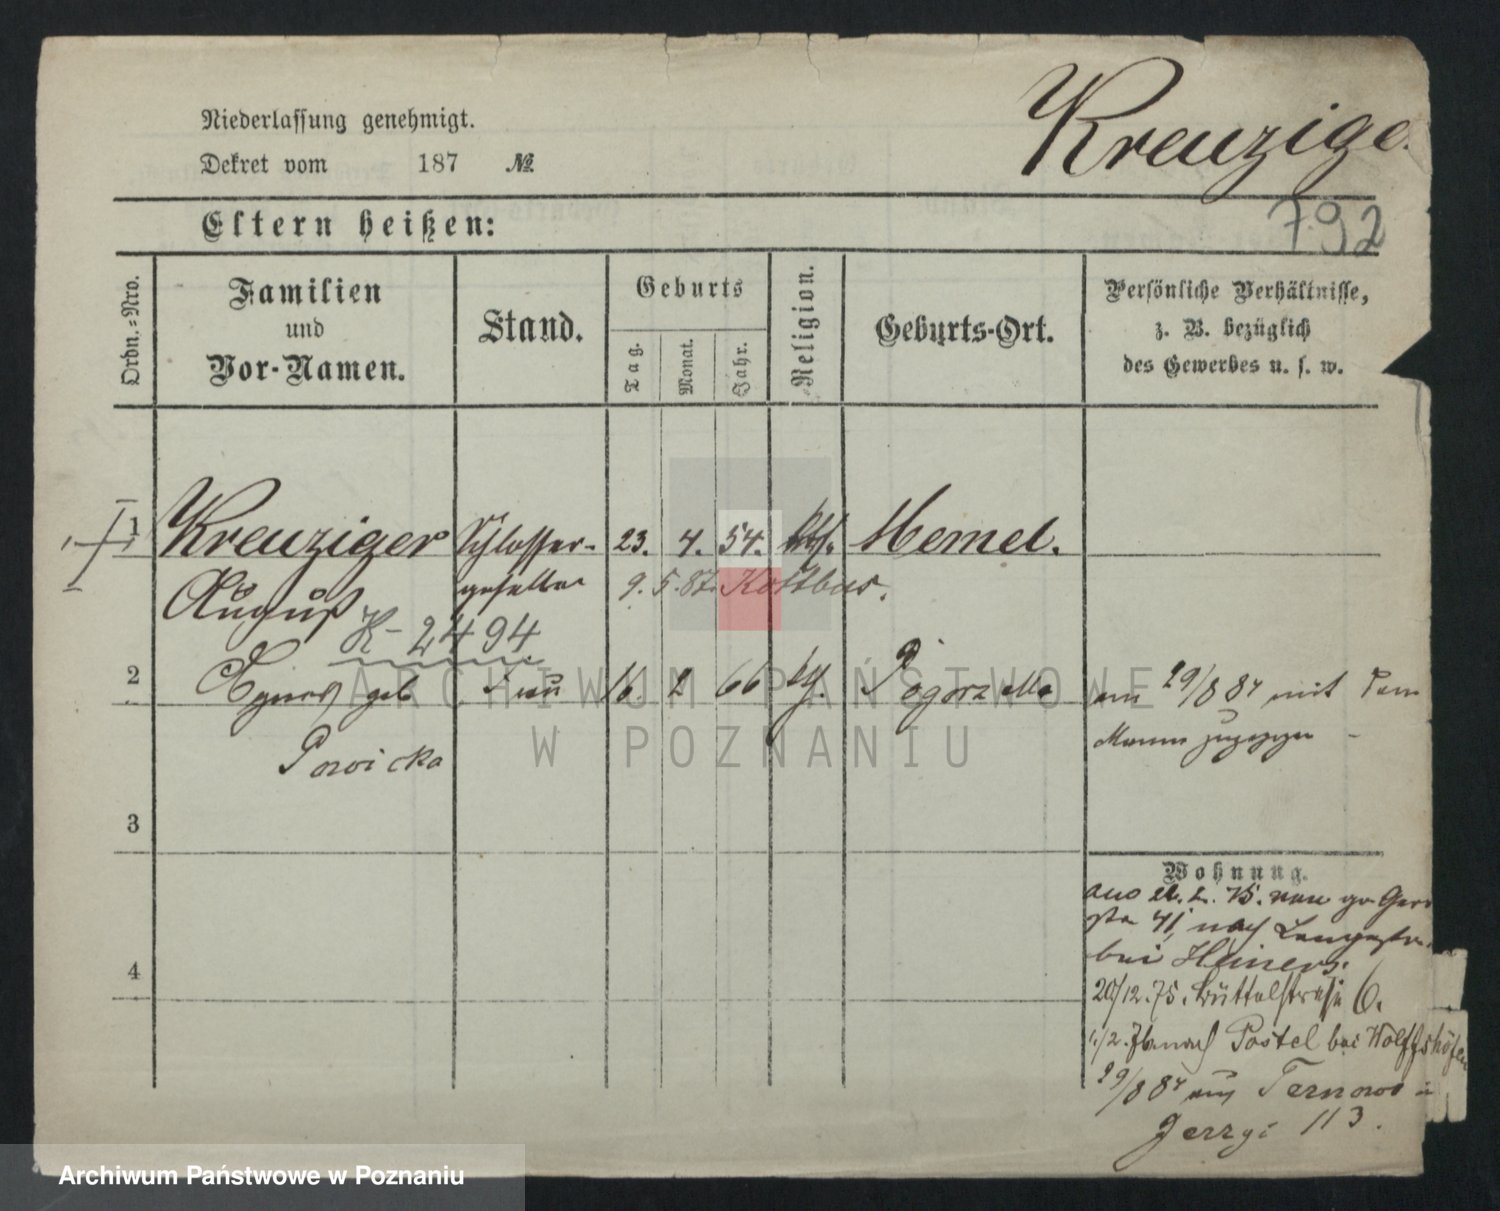 Niederlassung genehmigt.
Dekret vom 187 №
Kreuziger
792
Eltern heißen:
Ordn.-Nro.
Familien
und
Vor-Namen.
Stand.
Geburts
Tag.
Monat.
Jahr.
Religion.
Geburts-Ort.
Persönliche Verhältnisse,
z. B. bezüglich
des Gewerbes u. s. w.
1 Kreuziger Schlosser- 23. 4. 54. Memel.
August geselle 9. 5. 87. Kottbus.
K-2494
2 Agnes geb Frau 16. 2 66 Pogorzella am 29/8 87 mit dem
Powicka Manne zugezogen
3
4
Wohnung.
bei Heiners.
20/12.75. Büttelstraße 6.
nach Postel bei Wolffshöfen
29/8 87 aus Ternowo
Jerzyc 113.
ARCHIWUM PAŃSTWOWE
W POZNANIU
Archiwum Państwowe w Poznaniu